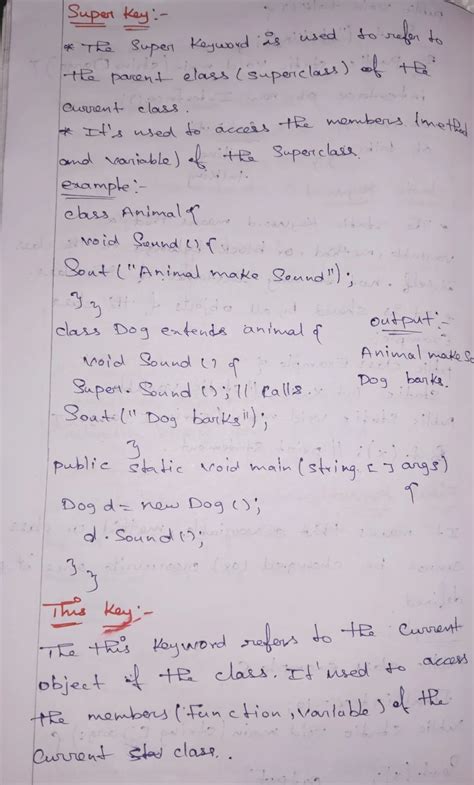 Super Key:-
* The Super Keyword is used to refer to
the parent class (superclass) of the
current class.
* It's used to access the members (method
and variable) of the Superclass.
example:-
class Animal {
void Sound () {
Sout ("Animal make Sound");
} }
class Dog extends animal {
output:-
void Sound () {
Animal make So
Super. Sound (); // calls.
Dog barks.
Sout (" Dog barks");
}
public static void main (string [ ] args)
{
Dog d = new Dog ();
d. Sound ();
} }
This Key:-
The this Keyword refers to the current
object of the class. It'used to access
the members (function, variable) of the
current class..